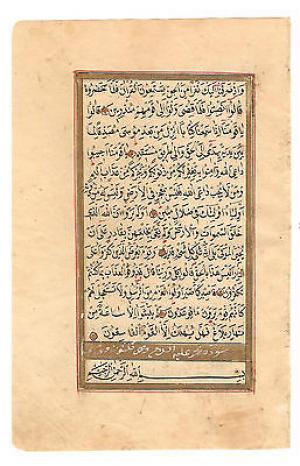 وَإِذْ صَرَفْنَا إِلَيْكَ نَفَرًا مِنَ الْجِنِّ يَسْتَمِعُونَ الْقُرْآنَ فَلَمَّا حَضَرُوهُ
قَالُوا أَنْصِتُوا فَلَمَّا قُضِيَ وَلَّوْا إِلَى قَوْمِهِمْ مُنْذِرِينَ قَالُوا
يَا قَوْمَنَا إِنَّا سَمِعْنَا كِتَابًا أُنْزِلَ مِنْ بَعْدِ مُوسَى مُصَدِّقًا لِمَا
بَيْنَ يَدَيْهِ يَهْدِي إِلَى الْحَقِّ وَإِلَى طَرِيقٍ مُسْتَقِيمٍ يَا قَوْمَنَا أَجِيبُوا
دَاعِيَ اللَّهِ وَآمِنُوا بِهِ يَغْفِرْ لَكُمْ مِنْ ذُنُوبِكُمْ وَيُجِرْكُمْ مِنْ عَذَابٍ أَلِيمٍ
وَمَنْ لَا يُجِبْ دَاعِيَ اللَّهِ فَلَيْسَ بِمُعْجِزٍ فِي الْأَرْضِ وَلَيْسَ لَهُ مِنْ دُونِهِ
أَوْلِيَاءُ أُولَئِكَ فِي ضَلَالٍ مُبِينٍ أَوَلَمْ يَرَوْا أَنَّ اللَّهَ الَّذِي
خَلَقَ السَّمَوَاتِ وَالْأَرْضَ وَلَمْ يَعْيَ بِخَلْقِهِنَّ بِقَادِرٍ عَلَى أَنْ
يُحْيِيَ الْمَوْتَى بَلَى إِنَّهُ عَلَى كُلِّ شَيْءٍ قَدِيرٌ وَيَوْمَ يُعْرَضُ الَّذِينَ كَفَرُوا عَلَى
النَّارِ أَلَيْسَ هَذَا بِالْحَقِّ قَالُوا بَلَى وَرَبِّنَا قَالَ فَذُوقُوا الْعَذَابَ بِمَا كُنْتُمْ
تَكْفُرُونَ فَاصْبِرْ كَمَا صَبَرَ أُولُوا الْعَزْمِ مِنَ الرُّسُلِ وَلَا تَسْتَعْجِلْ لَهُمْ
كَأَنَّهُمْ يَوْمَ يَرَوْنَ مَا يُوعَدُونَ لَمْ يَلْبَثُوا إِلَّا سَاعَةً مِنْ
نَهَارٍ بَلَاغٌ فَهَلْ يُهْلَكُ إِلَّا الْقَوْمُ الْفَاسِقُونَ
سورة محمد عليه السلام وهى
بِسْمِ اللَّهِ الرَّحْمَنِ الرَّحِيمِ